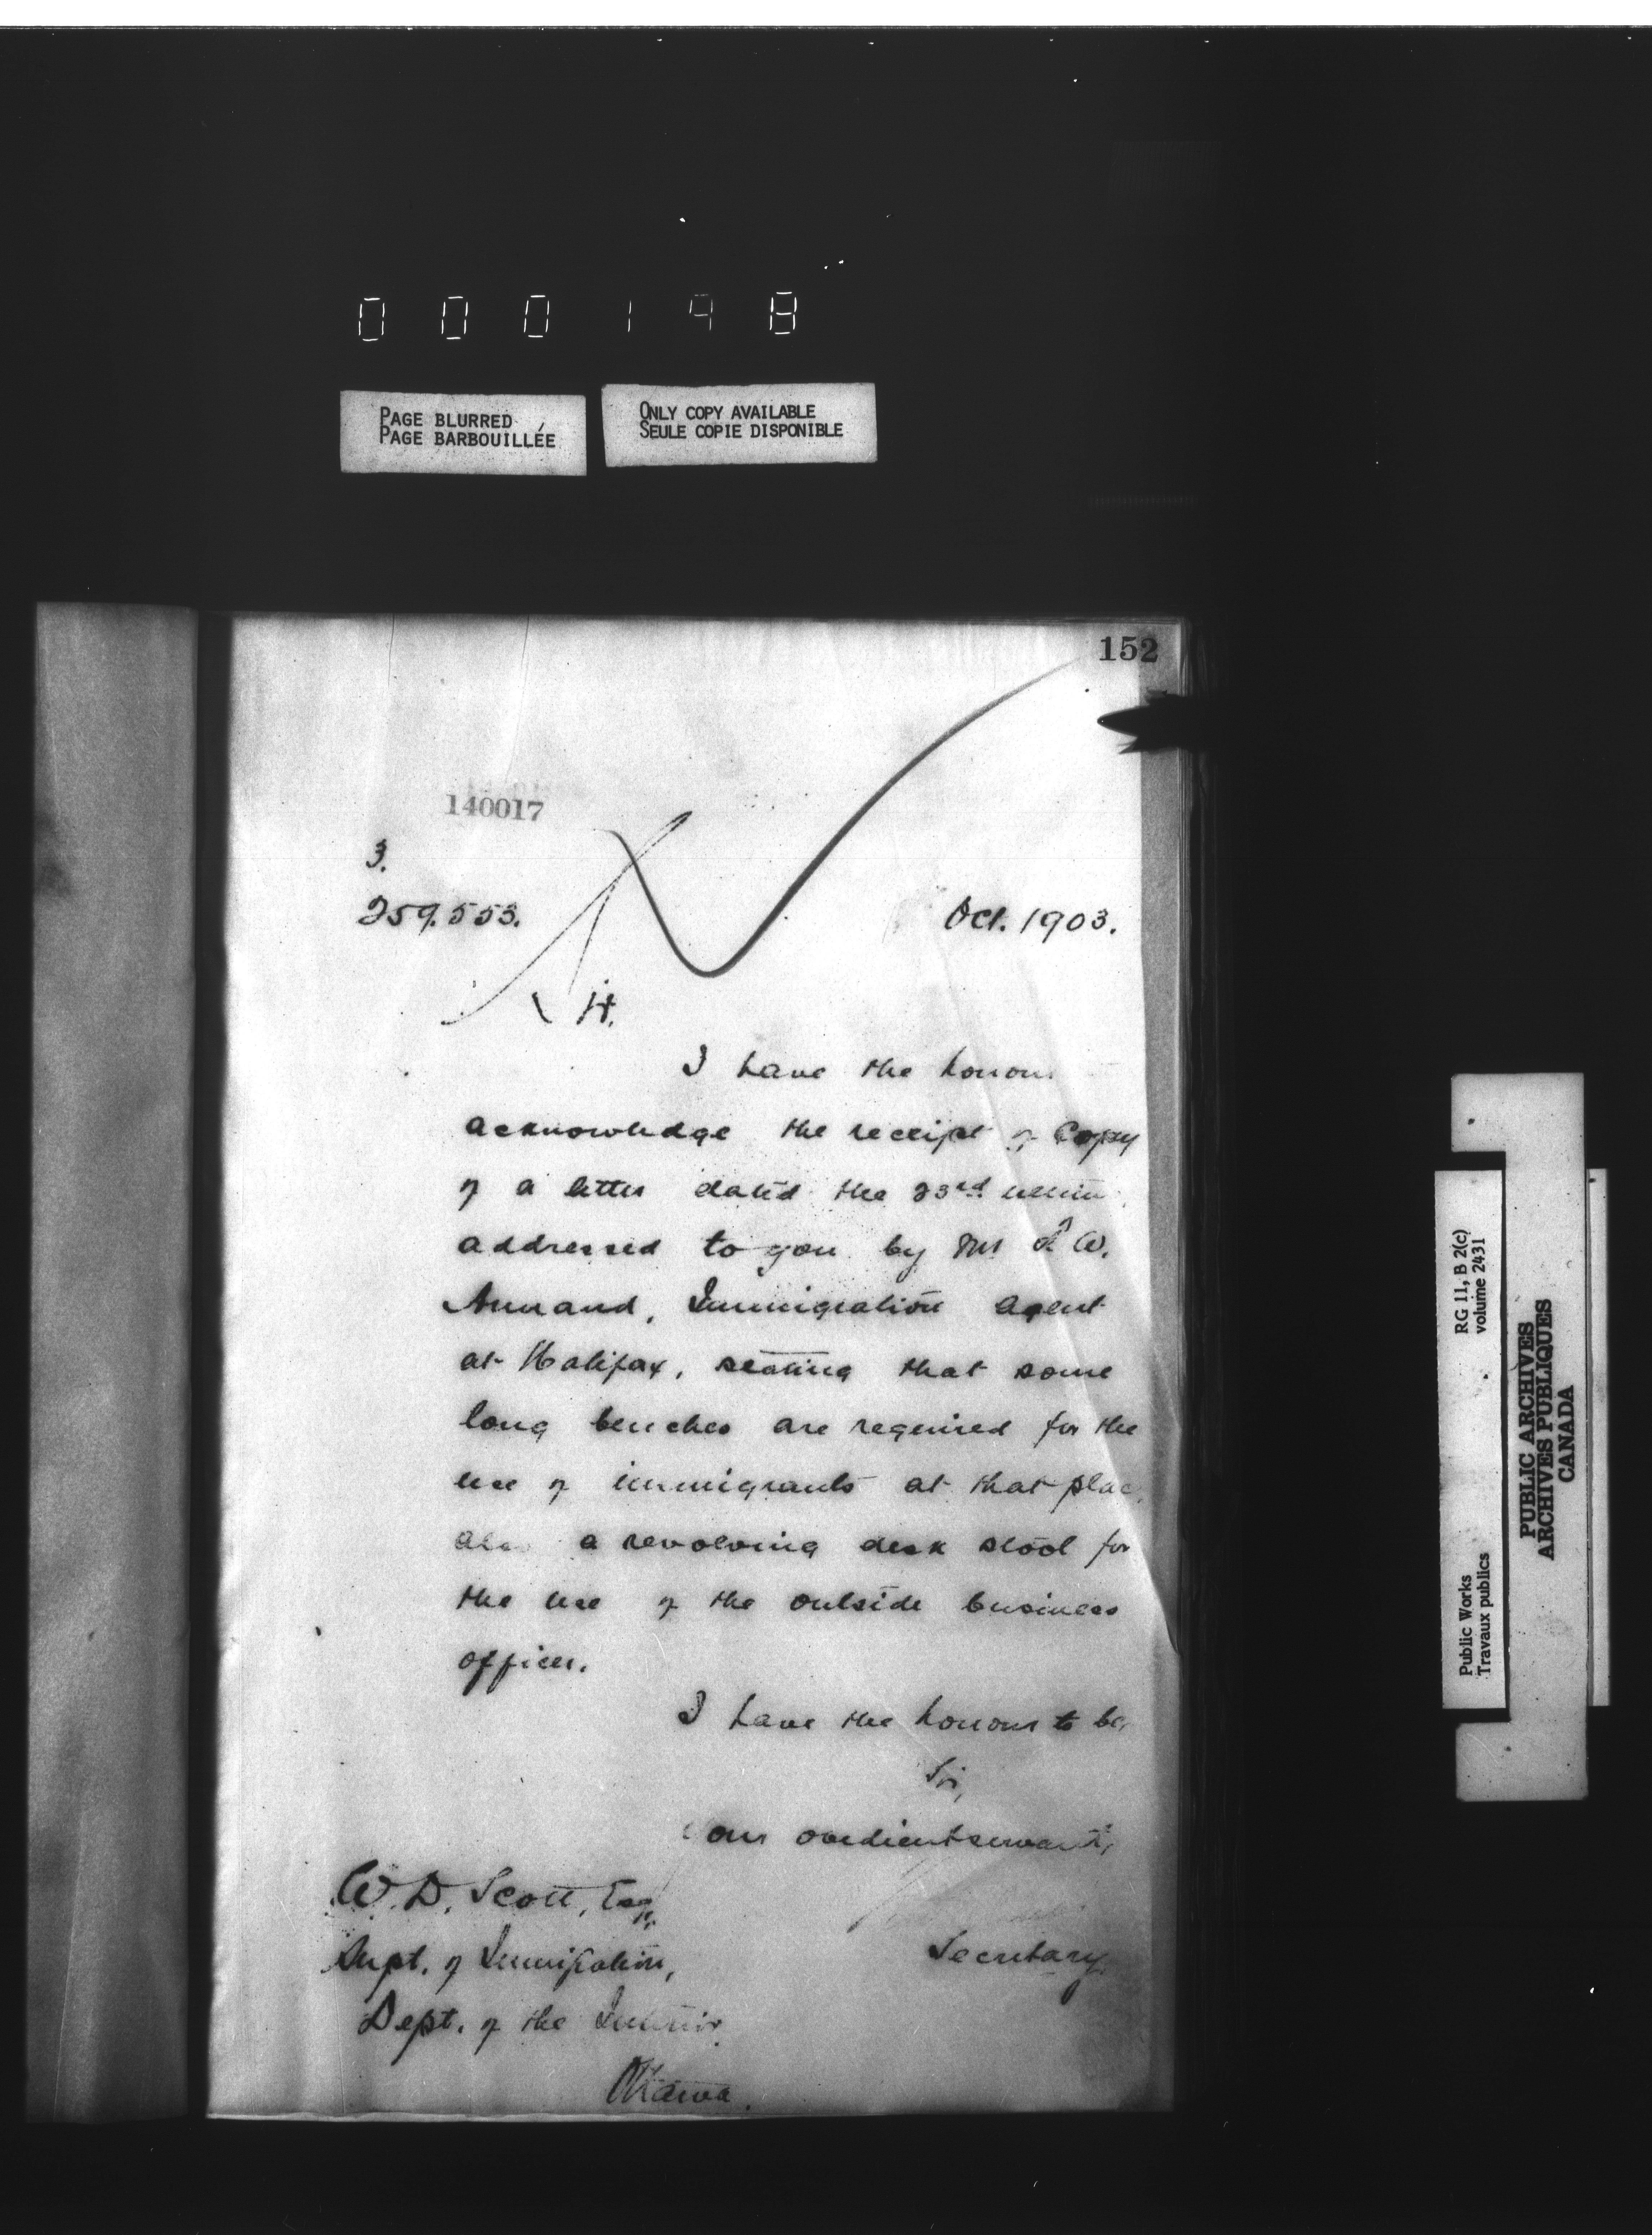 000148
PAGE BLURRED
PAGE BARBOUILLÉE
ONLY COPY AVAILABLE
SEULE COPIE DISPONIBLE
152
140017
3.
259.553.
Oct. 1903.
H.
I have the honour
acknowledge the receipt of Copy
of a letter dated the 23rd
addressed to you by Mr F. W.
Annand, Immigration Agent
at Halifax, stating that some
long benches are required for the
use of immigrants at that plac
also a revolving desk stool for
the use of the outside business
officer.
I have the honour to be,
Sir,
our obedient servant,
Secretary.
W. D. Scott, Esq.,
Supt. of Immigration,
Dept. of the Interior.
Ottawa.
Public Works
Travaux publics
RG 11, B 2(c)
volume 2431
PUBLIC ARCHIVES
ARCHIVES PUBLIQUES
CANADA